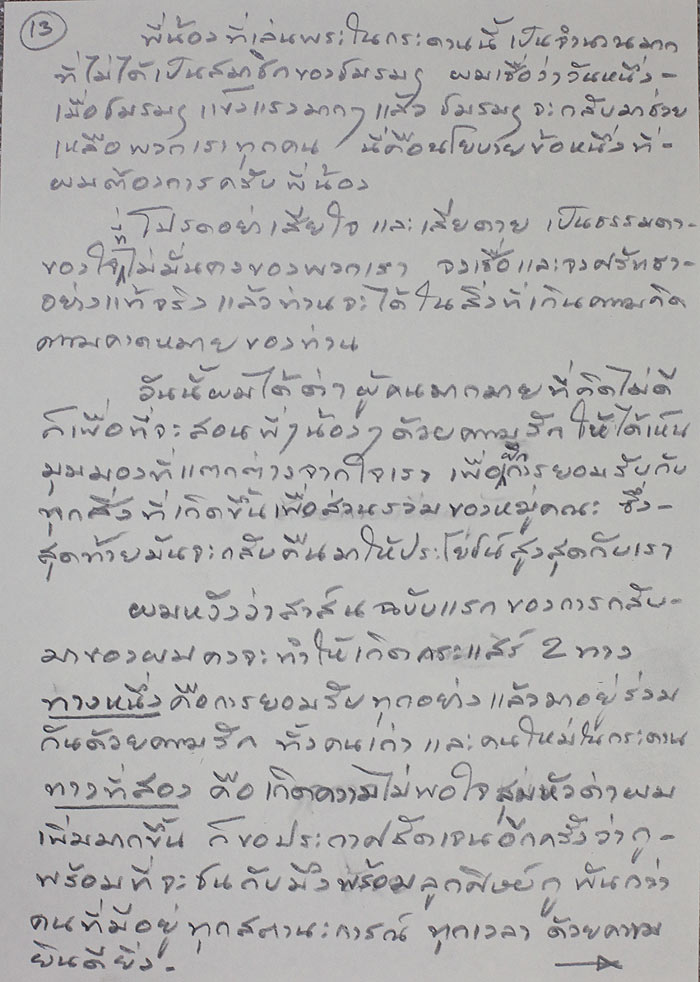 13
พี่น้องที่เล่นพระในกระดานนี้ เป็นจำนวนมาก
ที่ไม่ได้เป็นสมาชิกของชมรมฯ ผมเชื่อว่าวันหนึ่ง-
เมื่อชมรมฯ แข็งแรงมากๆ แล้ว ชมรมฯ จะกลับมาช่วย
เหลือพวกเราทุกคน นี่คือนโยบายข้อหนึ่งที่-
ผมต้องการครับพี่น้อง
โปรดอย่าเสียใจ และเสียดาย เป็นธรรมดา-
ของใจที่ไม่มั่นคงของพวกเรา จงเชื่อและจงศรัทธา-
อย่างแท้จริง แล้วท่านจะได้ในสิ่งที่เกินความคิด
ความคาดหมายของท่าน
วันนี้ผมได้ด่า ผู้คนมากมาย ที่คิดไม่ดี
ก็เพื่อที่จะสอนพี่ๆน้องๆ ด้วยความรัก ให้ได้เห็น
มุมมองที่แตกต่างจากใจเรา เพื่อการยอมรับกับ
ทุกสิ่งที่เกิดขึ้นเพื่อส่วนรวมของหมู่คณะ ซึ่ง-
สุดท้ายมันจะกลับคืนมาให้ประโยชน์สูงสุดกับเรา
ผมหวังว่าสาส์นฉบับแรกของการกลับ-
มาของผมคงจะทำให้เกิดกระแสร์ 2 ทาง
ทางหนึ่ง คือการยอมรับทุกอย่าง แล้วมาอยู่ร่วม
กันด้วยความรัก ทั้งคนเก่า และคนใหม่ในกระดาน
ทางที่สอง คือ เกิดความไม่พอใจ สุมหัวด่าผม
เพิ่มมากขึ้น ก็ขอประกาศชัดเจนอีกครั้งว่ากู-
พร้อมที่จะชนกับมึงพร้อมลูกศิษย์กู พันกว่า
คนที่มีอยู่ ทุกสถานะการณ์ ทุกเวลา ด้วยความ
ยินดียิ่ง-